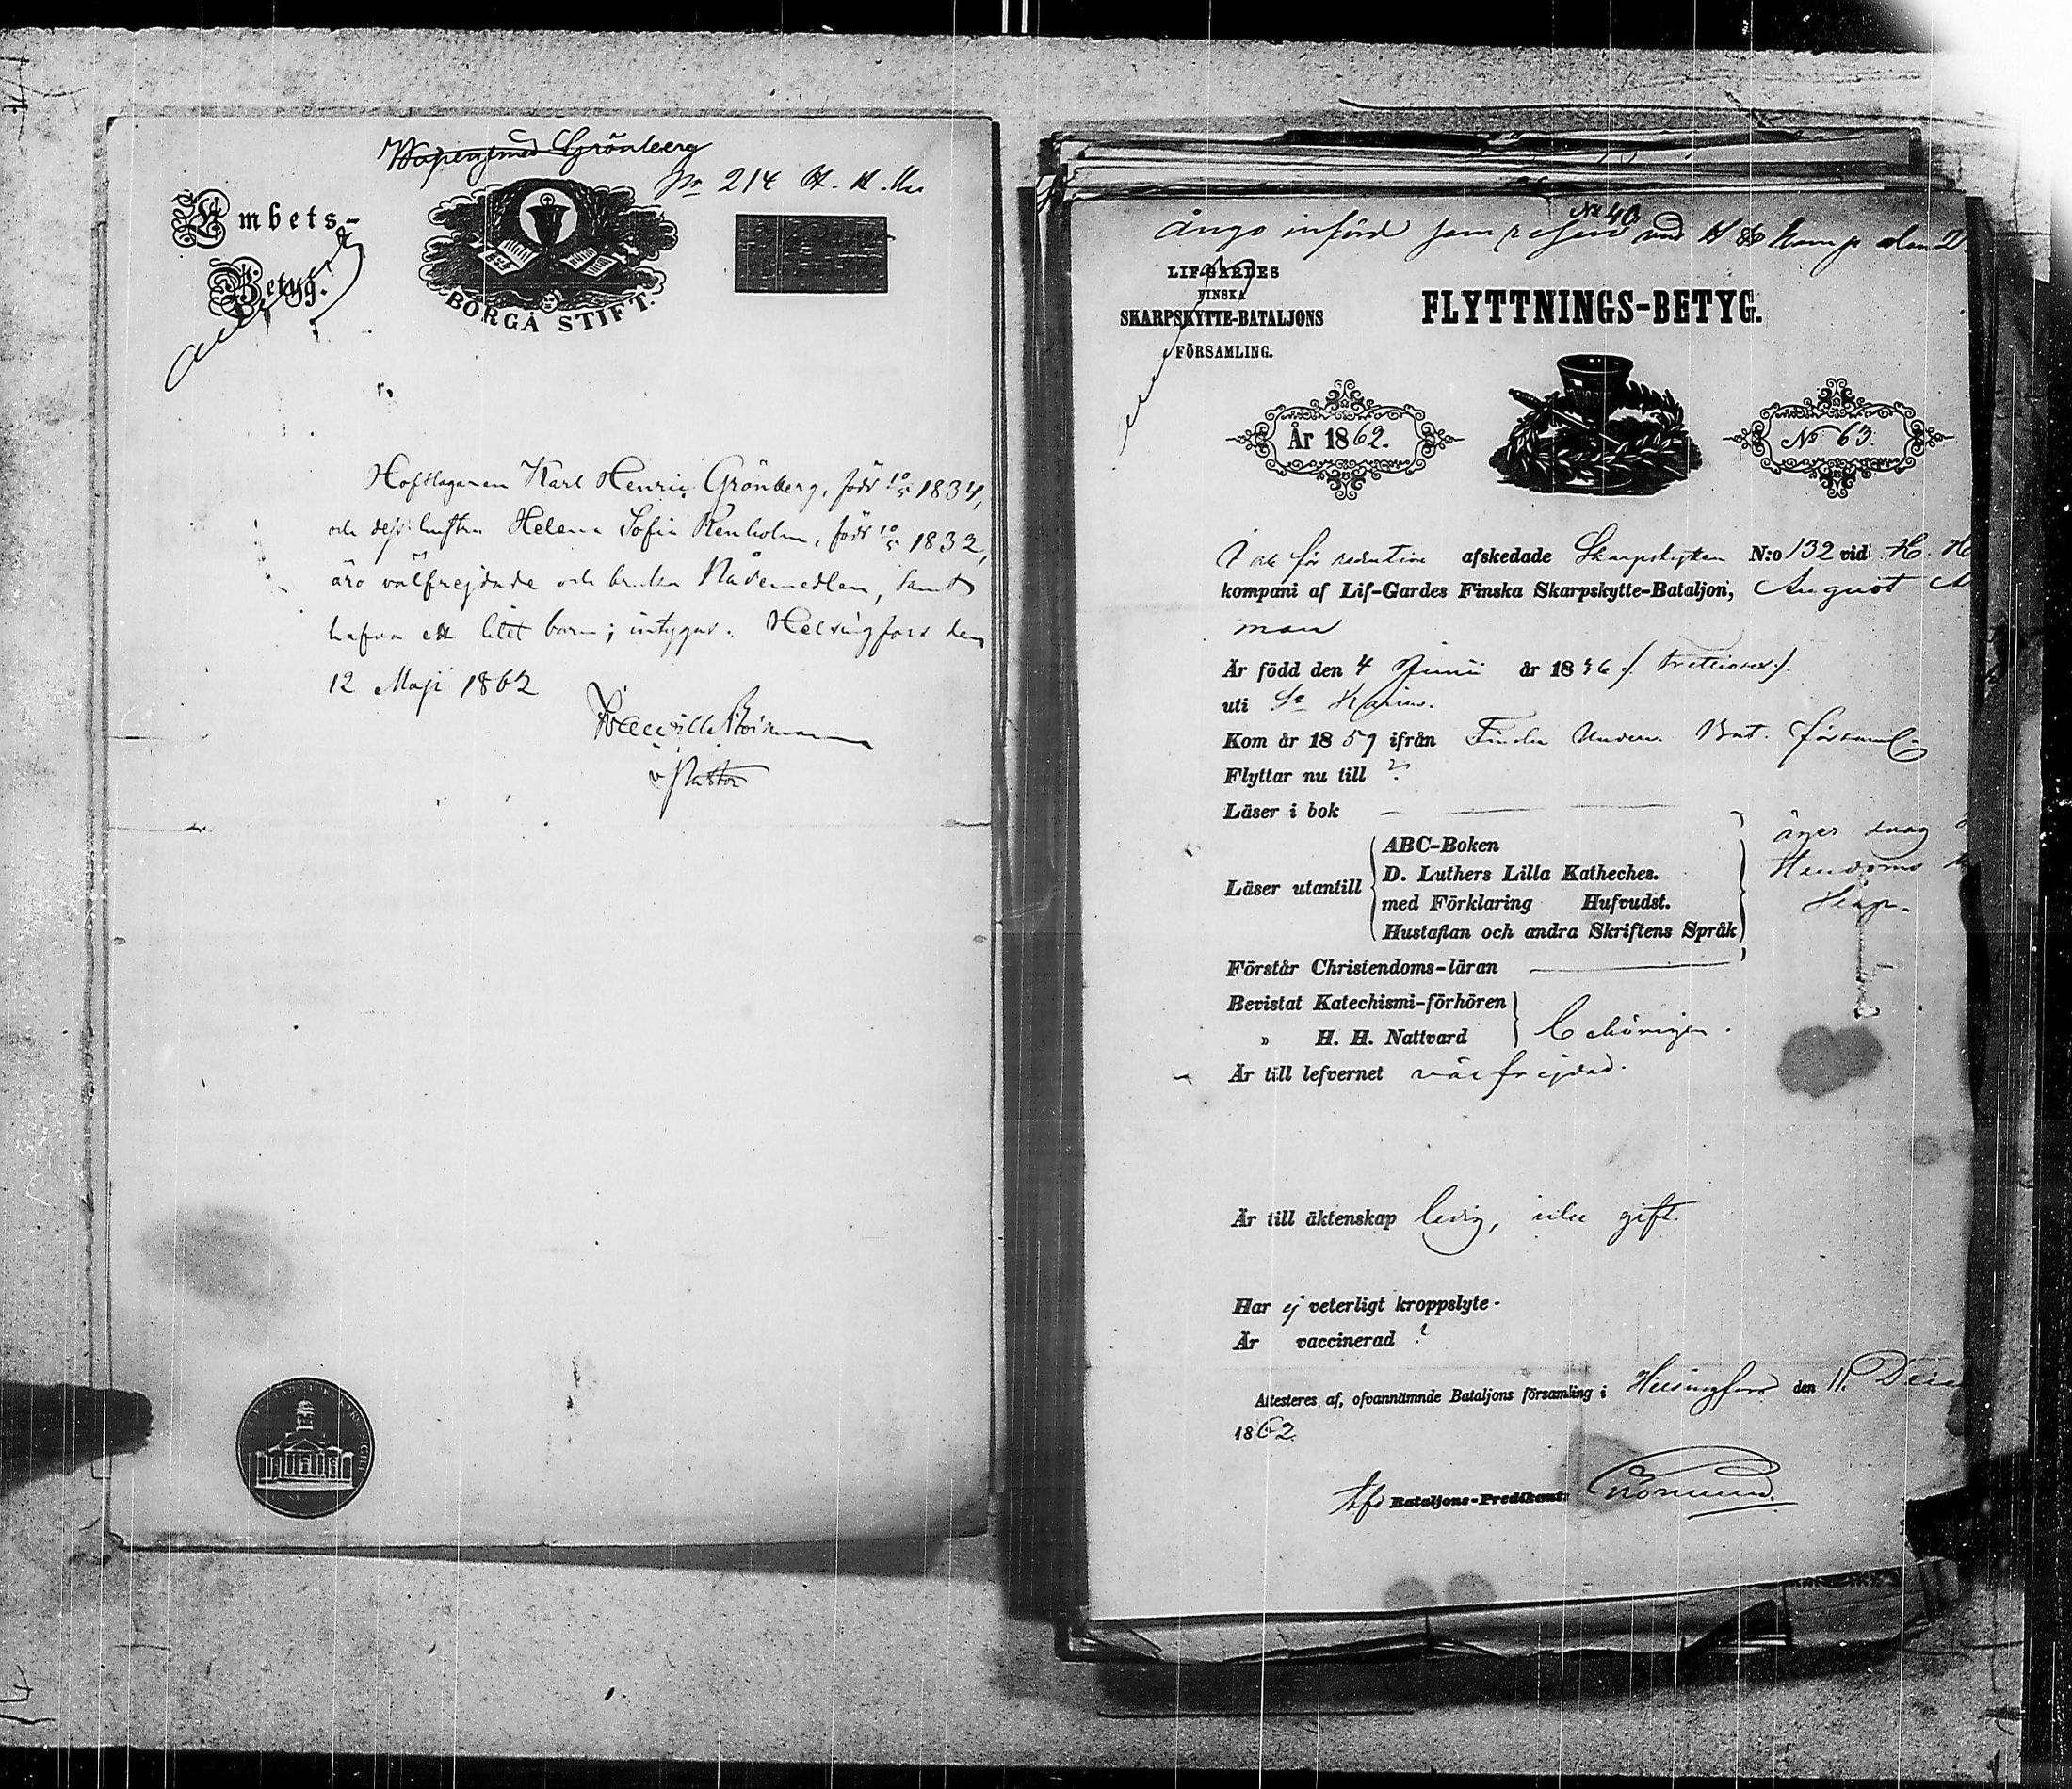 Grönberg
No 214
Embets-
Betyg.
BORGÅ STIFT.
Hofslagaren Karl Henric Grönberg, född 10/5 1834,
och dess hustru Helena Sofia Renholm, född 10/5 1832,
äro välfrejdade och bruka Nådemedlen, samt
hafva ett litet barn; intygas. Helsingfors den
12 Maji 1862
v Pastor
No 40
införd som
LIF-GARDES
FINSKA
SKARPSKYTTE-BATALJONS
FÖRSAMLING.
FLYTTNINGS-BETYG.
År 1862.
No 63.
för reduction afskedade Skarpskytten N:o 132 vid H. H
kompani af Lif-Gardes Finska Skarpskytte-Bataljon, August
man
Är född den 4 Junii år 1836 /: trettiosex :/.
uti St Karins.
Kom år 1857 ifrån Finska Underv. Bat. församl
Flyttar nu till ?
Läser i bok
Läser utantill
ABC-Boken
D. Luthers Lilla Katheches.
med Förklaring Hufvudst.
Hustaflan och andra Skriftens Språk
äger svag
Förstår Christendoms-läran
Bevistat Katechismi-förhören
» H. H. Nattvard
behörigen.
Är till lefvernet välfrejdad.
Är till äktenskap ledig, icke gift.
Har ej veterligt kroppslyte.
Är vaccinerad ?
Attesteres af, ofvannämnde Bataljons församling i Helsingfors den 11
1862.
Bataljons-Predikant: